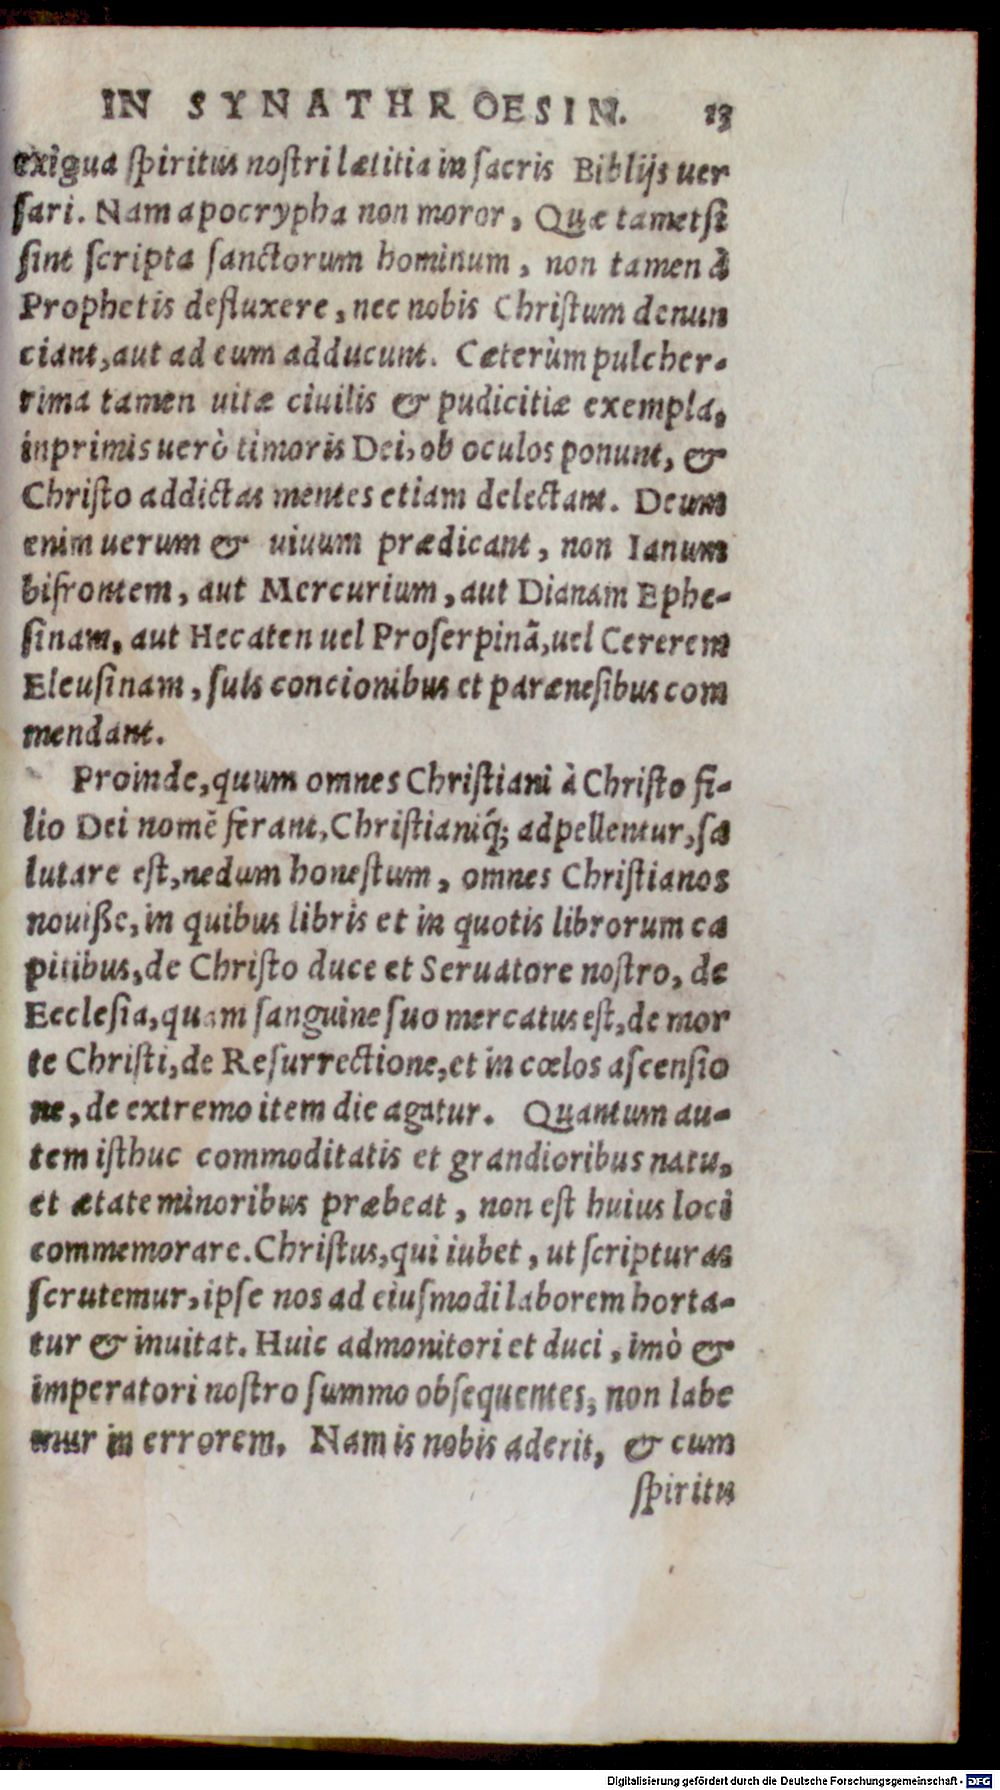 IN SYNATHROESIN. 13
exigua spiritus nostri lætitia in sacris Biblijs uer
sari. Nam apocrypha non moror, Quæ tametsi
sint scripta sanctorum hominum, non tamen à
Prophetis defluxere, nec nobis Christum denun
ciant, aut ad eum adducunt. Cæterùm pulcher-
rima tamen uitæ ciuilis & pudicitiæ exempla,
inprimis uerò timoris Dei, ob oculos ponunt, &
Christo addictas mentes etiam delectant. Deum
enim uerum & uiuum prædicant, non Ianum
bifrontem, aut Mercurium, aut Dianam Ephe-
sinam, aut Hecaten uel Proserpinã, uel Cererem
Eleusinam, suis concionibus et parænesibus com
mendant.
Proinde, quum omnes Christiani à Christo fi-
lio Dei nomẽ ferant, Christianiq́; adpellentur, sa
lutare est, nedum honestum, omnes Christianos
nouiße, in quibus libris et in quotis librorum ca
pitibus, de Christo duce et Seruatore nostro, de
Ecclesia, quam sanguine suo mercatus est, de mor
te Christi, de Resurrectione, et in cœlos ascensio
ne, de extremo item die agatur. Quantum au-
tem isthuc commoditatis et grandioribus natu,
et ætate minoribus præbeat, non est huius loci
commemorare. Christus, qui iubet, ut scripturas
scrutemur, ipse nos ad eiusmodi laborem horta-
tur & inuitat. Huic admonitori et duci, imò &
imperatori nostro summo obsequentes, non labe
mur in errorem. Nam is nobis aderit, & cum
spiritu
Digitalisierung gefördert durch die Deutsche Forschungsgemeinschaft - DFG